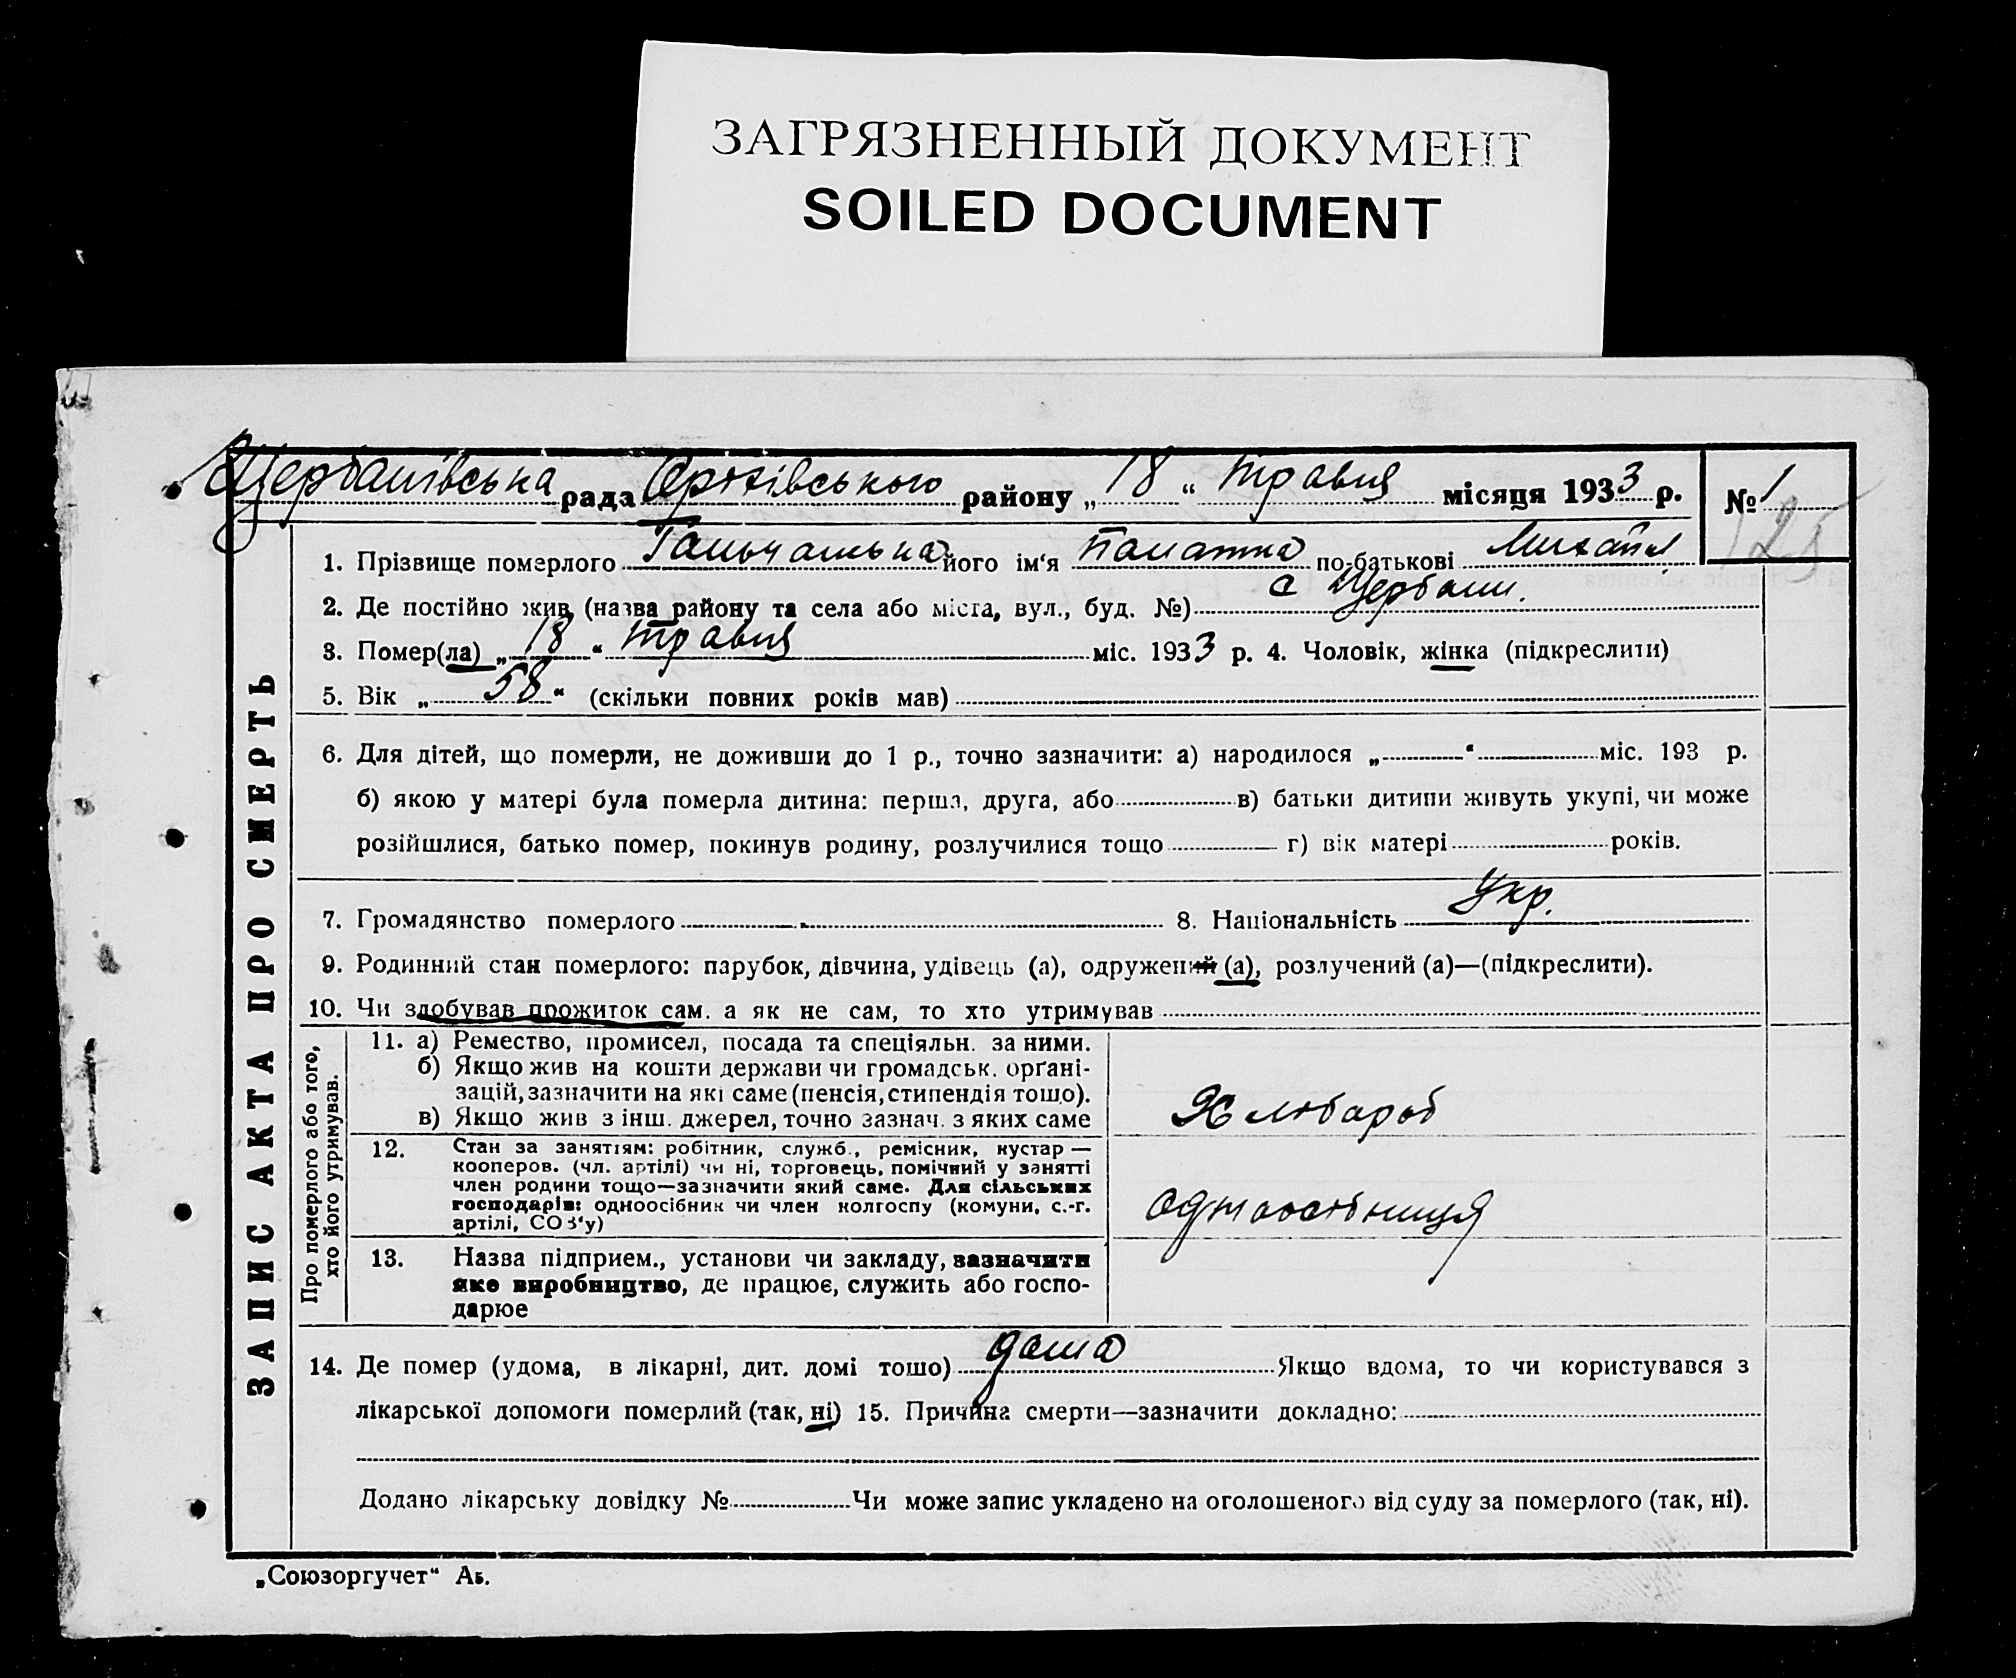 ЗАГРЯЗНЕННЫЙ ДОКУМЕНТ
SOILED DOCUMENT
рада району „ 18 “ травня місяця 1933 р. № 1
125
1. Прізвище померлого його ім‘я по-батькові
2. Де постійно жив (назва району та села або міста, вул., буд. №) с Щербані.
3. Помер(ла) „ 18 “ травня міс. 1933 р. 4. Чоловік, жінка (підкреслити)
5. Вік „ 58 “ (скільки повних років мав)
6. Для дітей, що померли, не доживши до 1 р., точно зазначити: а) народилося „ “ міс. 193 р.
б) якою у матері була померла дитина: перша, друга, або в) батьки дитини живуть укупі, чи може
розійшлися, батько помер, покинув родину, розлучилися тощо г) вік матері років.
7. Громадянство померлого 8. Національність Укр.
9. Родинний стан померлого: парубок, дівчина, удівець (а), одружений (а), розлучений (а)—(підкреслити).
10. Чи здобував прожиток сам. а як не сам, то хто утримував
11. а) Ремество, промисел, посада та спеціяльн. за ними.
б) Якщо жив на кошти держави чи громадськ. орґані-
зацій, зазначити на які саме (пенсія, стипендія тощо).
в) Якщо жив з інш. джерел, точно зазнач. з яких саме
Хлібороб
12. Стан за заняттям: робітник, служб., ремісник, кустар —
кооперов. (чл. артілі) чи ні, торговець, помічний у занятті
член родини тощо—зазначити який саме. Для сільських
господарів: одноосібник чи член колгоспу (комуни, с.-г.
артілі, СОЗ‘у)
одноосібниця
13. Назва підприєм., установи чи закладу, зазначити
яке виробництво, де працює, служить або госпо-
дарює
14. Де помер (удома, в лікарні, дит. домі тощо) дома Якщо вдома, то чи користувався з
лікарської допомоги померлий (так, ні) 15. Причина смерти—зазначити докладно:
Додано лікарську довідку № Чи може запис укладено на оголошеного від суду за померлого (так, ні).
ЗАПИС АКТА ПРО СМЕРТЬ
Про померлого або того,
хто його утримував.
„Союзоргучет“